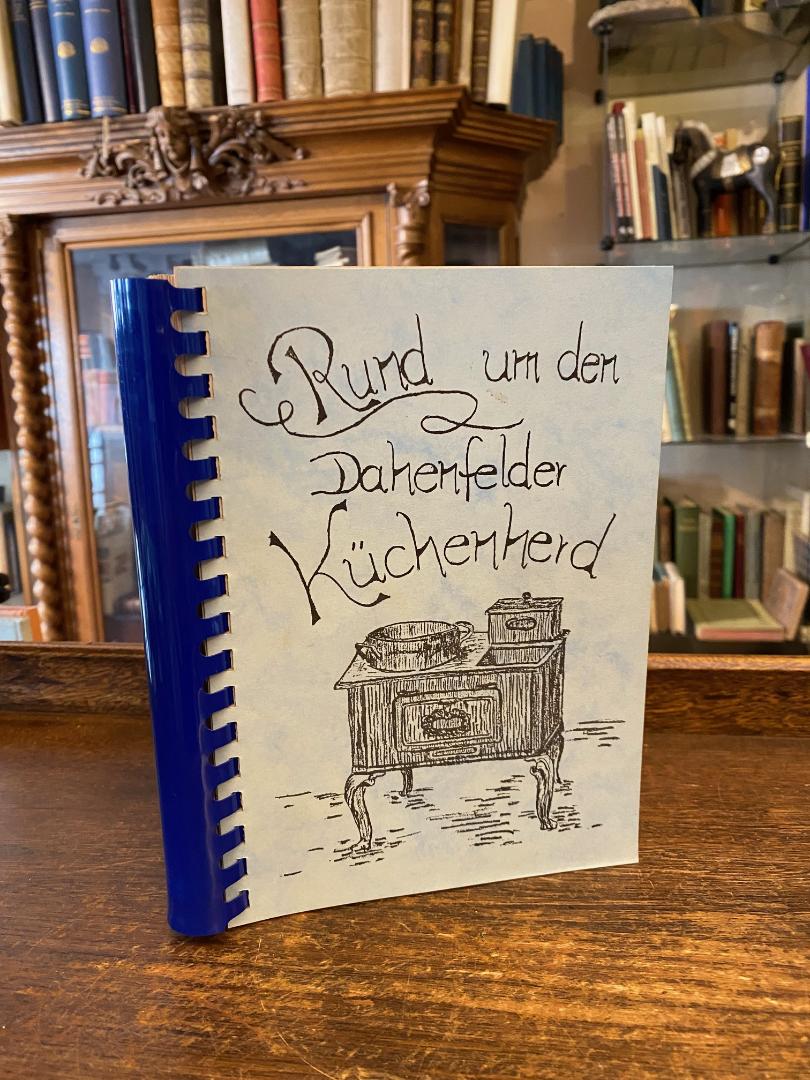 Rund um den
Dahenfelder
Küchenherd